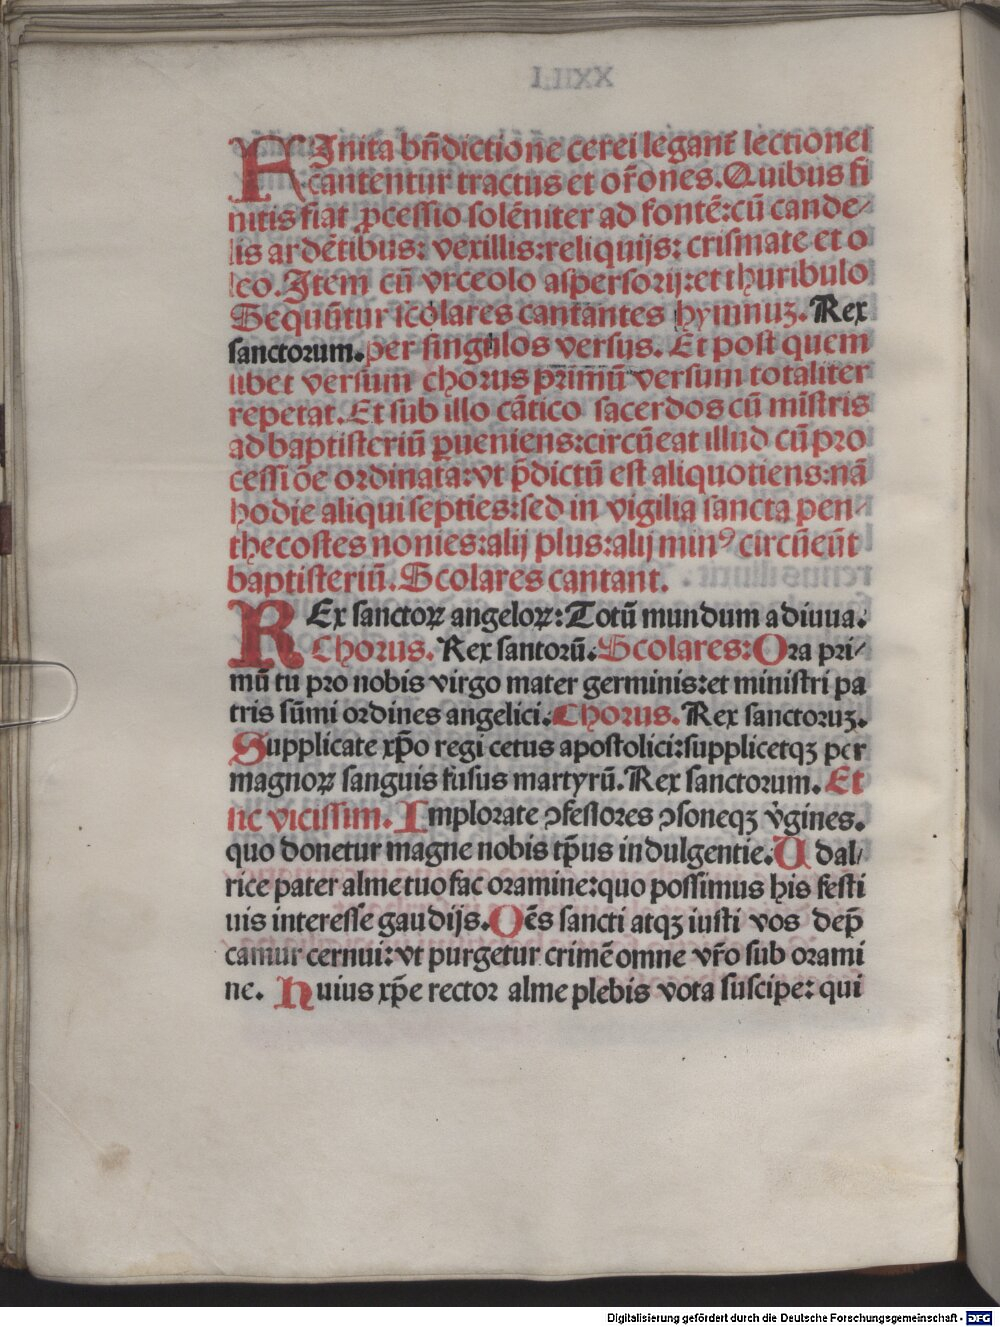 FInita bñdictiõne cerei legant̃ lectiones
cantentur tractus et or̃ones. Quibus fi
nitis fiat ꝓcessio solẽniter ad fontẽ: cũ cande⸗
lis ardẽtibus: vexillis: reliquijs: crismate et o
leo. Item cũ vrceolo aspersorij: et thuribulo
Sequũtur scolares cantantes hymnuꝫ. Rex
sanctorum. per singulos versus. Et post quem
libet versum chorus primũ versum totaliter
repetat. Et sub illo cãtico sacerdos cũ mĩstris
ad baptisteriũ ꝑueniens: circũeat illud cũ pro
cessiõe ordinata: vt p̃dictũ est aliquotiens: nã
hodie aliqui septies: sed in vigilia sancta pen⸗
thecostes nonies: alij plus: alij minꝰ circũeũt
baptisteriũ. Scolares cantant.
REx sanctoꝝ angeloꝝ: Totũ mundum adiuua.
Chorus. Rex santorũ. Scolares: Ora pri⸗
mũ tu pro nobis virgo mater germinis: et ministri pa
tris sũmi ordines angelici. Chorus. Rex sanctoruꝫ.
Supplicate xp̃o regi cetus apostolici: supplicetqꝫ per
magnoꝝ sanguis fusus martyrũ. Rex sanctorum. Et
sic vicissim. Implorate ↄfessores ↄsoneqꝫ v̾gines.
quo donetur magne nobis tp̃us indulgentie. Udal⸗
rice pater alme tuo fac oramine: quo possimus his festi
uis interesse gaudijs. Oẽs sancti atqꝫ iusti vos dep̃
camur cernui: vt purgetur crimẽ omne vr̃o sub orami
ne. Huius xp̃e rector alme plebis vota suscipe: qui
Digitalisierung gefördert durch die Deutsche Forschungsgemeinschaft - DFG